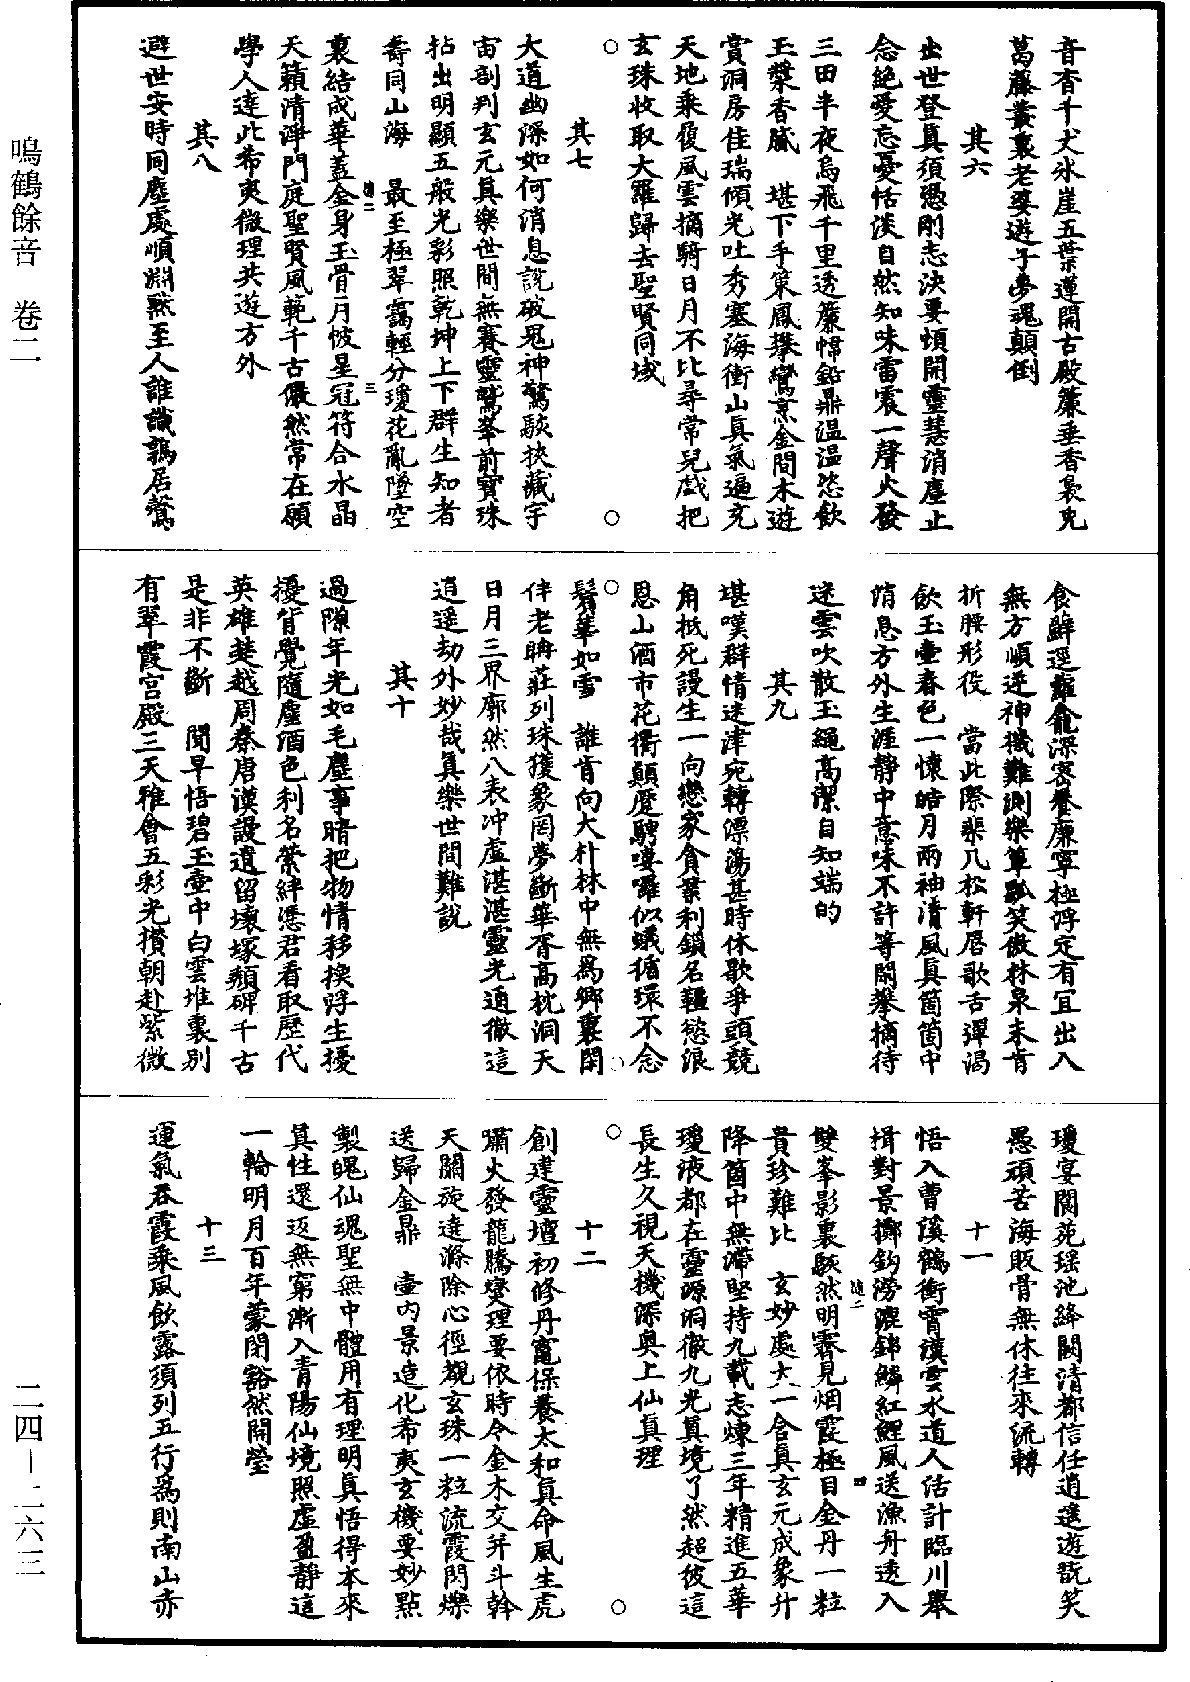 鳴鶴餘音　卷二
二四－二六三
音杳千丈氷崖五葉蓮開古殿簾垂香裊兎
葛藤叢裏老婆遊子夢魂顛倒
其六
出世登真須憑剛志決要頓開靈慧消塵止
念絶愛忘憂恬淡自然知味雷震一聲火發
三田半夜烏飛千里透簾幃鉛鼎溫溫恣飲
玉漿香膩　堪下手策鳳攀鸞烹金間木遊
賞洞房佳瑞傾光吐秀塞海衝山真氣遍充
天地乘履風雲摘騎日月不比尋常兒戲把
玄珠收取大羅歸去聖賢同域
其七
大道幽深如何消息說破鬼神驚駭挾藏宇
宙剖判玄元真樂世間無賽靈鷲峯前寶珠
拈出明顯五般光彩照乾坤上下群生知者
壽同山海　最至極翠靄輕分瓊花亂墜空
裏結成華蓋金身玉骨月帔星冠符合水晶
天籟清淨門庭聖賢風範千古儼然常在願
學人達此希夷微理共遊方外
其八
避世安時同塵處順淵黙至人誰識鶉居鷇
食蘚逕蘿龕深密養廉寧極浮定有宜出入
無方順逆神機難測樂簞瓢笑傲林泉未肯
折腰形役　當此際棐几松軒唇歌舌彈渴
飲玉壷春色一懷皓月兩袖清風真箇箇中
消息方外生涯靜中意味不許等閑攀摘待
迷雲吹散玉繩高潔自知端的
其九
堪嘆群情迷津宛轉漂蕩甚時休歇爭頭競
角抵死謾生一向戀家貪業利鎖名韁慾浪
恩山酒市花衢顛蹙騁嘍囉似蟻循環不念
鬢華如雪　誰肯向大朴林中無爲鄉裏閑
伴老聃莊列珠獲象罔夢斷華胥高枕洞天
日月三界廓然八表冲虛湛湛靈光通徹這
逍遥劫外妙哉真樂世間難說
其十
過隙年光如毛塵事暗把物情移換浮生擾
擾背覺隨塵酒色利名縈絆憑君看取歷代
英雄楚越周秦唐漢謾遺留壞塚頹碑千古
是非不斷　聞早悟碧玉壷中白雲堆裏別
有翠霞宫殿三天雅會五彩光攅朝赴紫微
瓊宴閬苑瑶池絳闕清都信任逍遥遊翫笑
愚頑苦海販骨無休往來流轉
十一
悟入曹溪鶴衝霄漢雲水道人活計臨川舉
楫對景擲鈎澇漉錦鱗紅鯉風送漁舟透入
雙峯影裏駭然明霽見烟霞極目金丹一粒
貴珍難比　玄妙處太一含真玄元成象升
降箇中無滯堅持九載志煉三年精進五華
瓊液都在靈源洞徹九光真境了然超彼這
長生久視天機深奥上仙真理
十二
創建靈壇初修丹竈保養太和真命風生虎
嘯火發龍騰爕理要依時令金木交并斗斡
天關旋達滌除心徑覩玄珠一粒流霞閃爍
送歸金鼎　壷內景造化希夷玄機要妙點
製魄仙魂聖無中體用有理明真悟得本來
真性還返無窮漸入青陽仙境照虛盈靜這
一輪明月百年蒙閉豁然開瑩
十三
運氣吞霞乘風飲露須列五行爲則南山赤